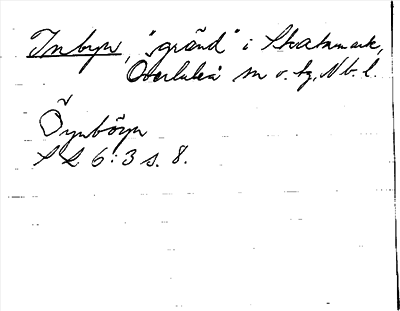 Inbyn, "gränd" i Skatamark,
Överluleå sn o. tg, Nb. l.
Öynböyn
S L 6:3 s. 8.